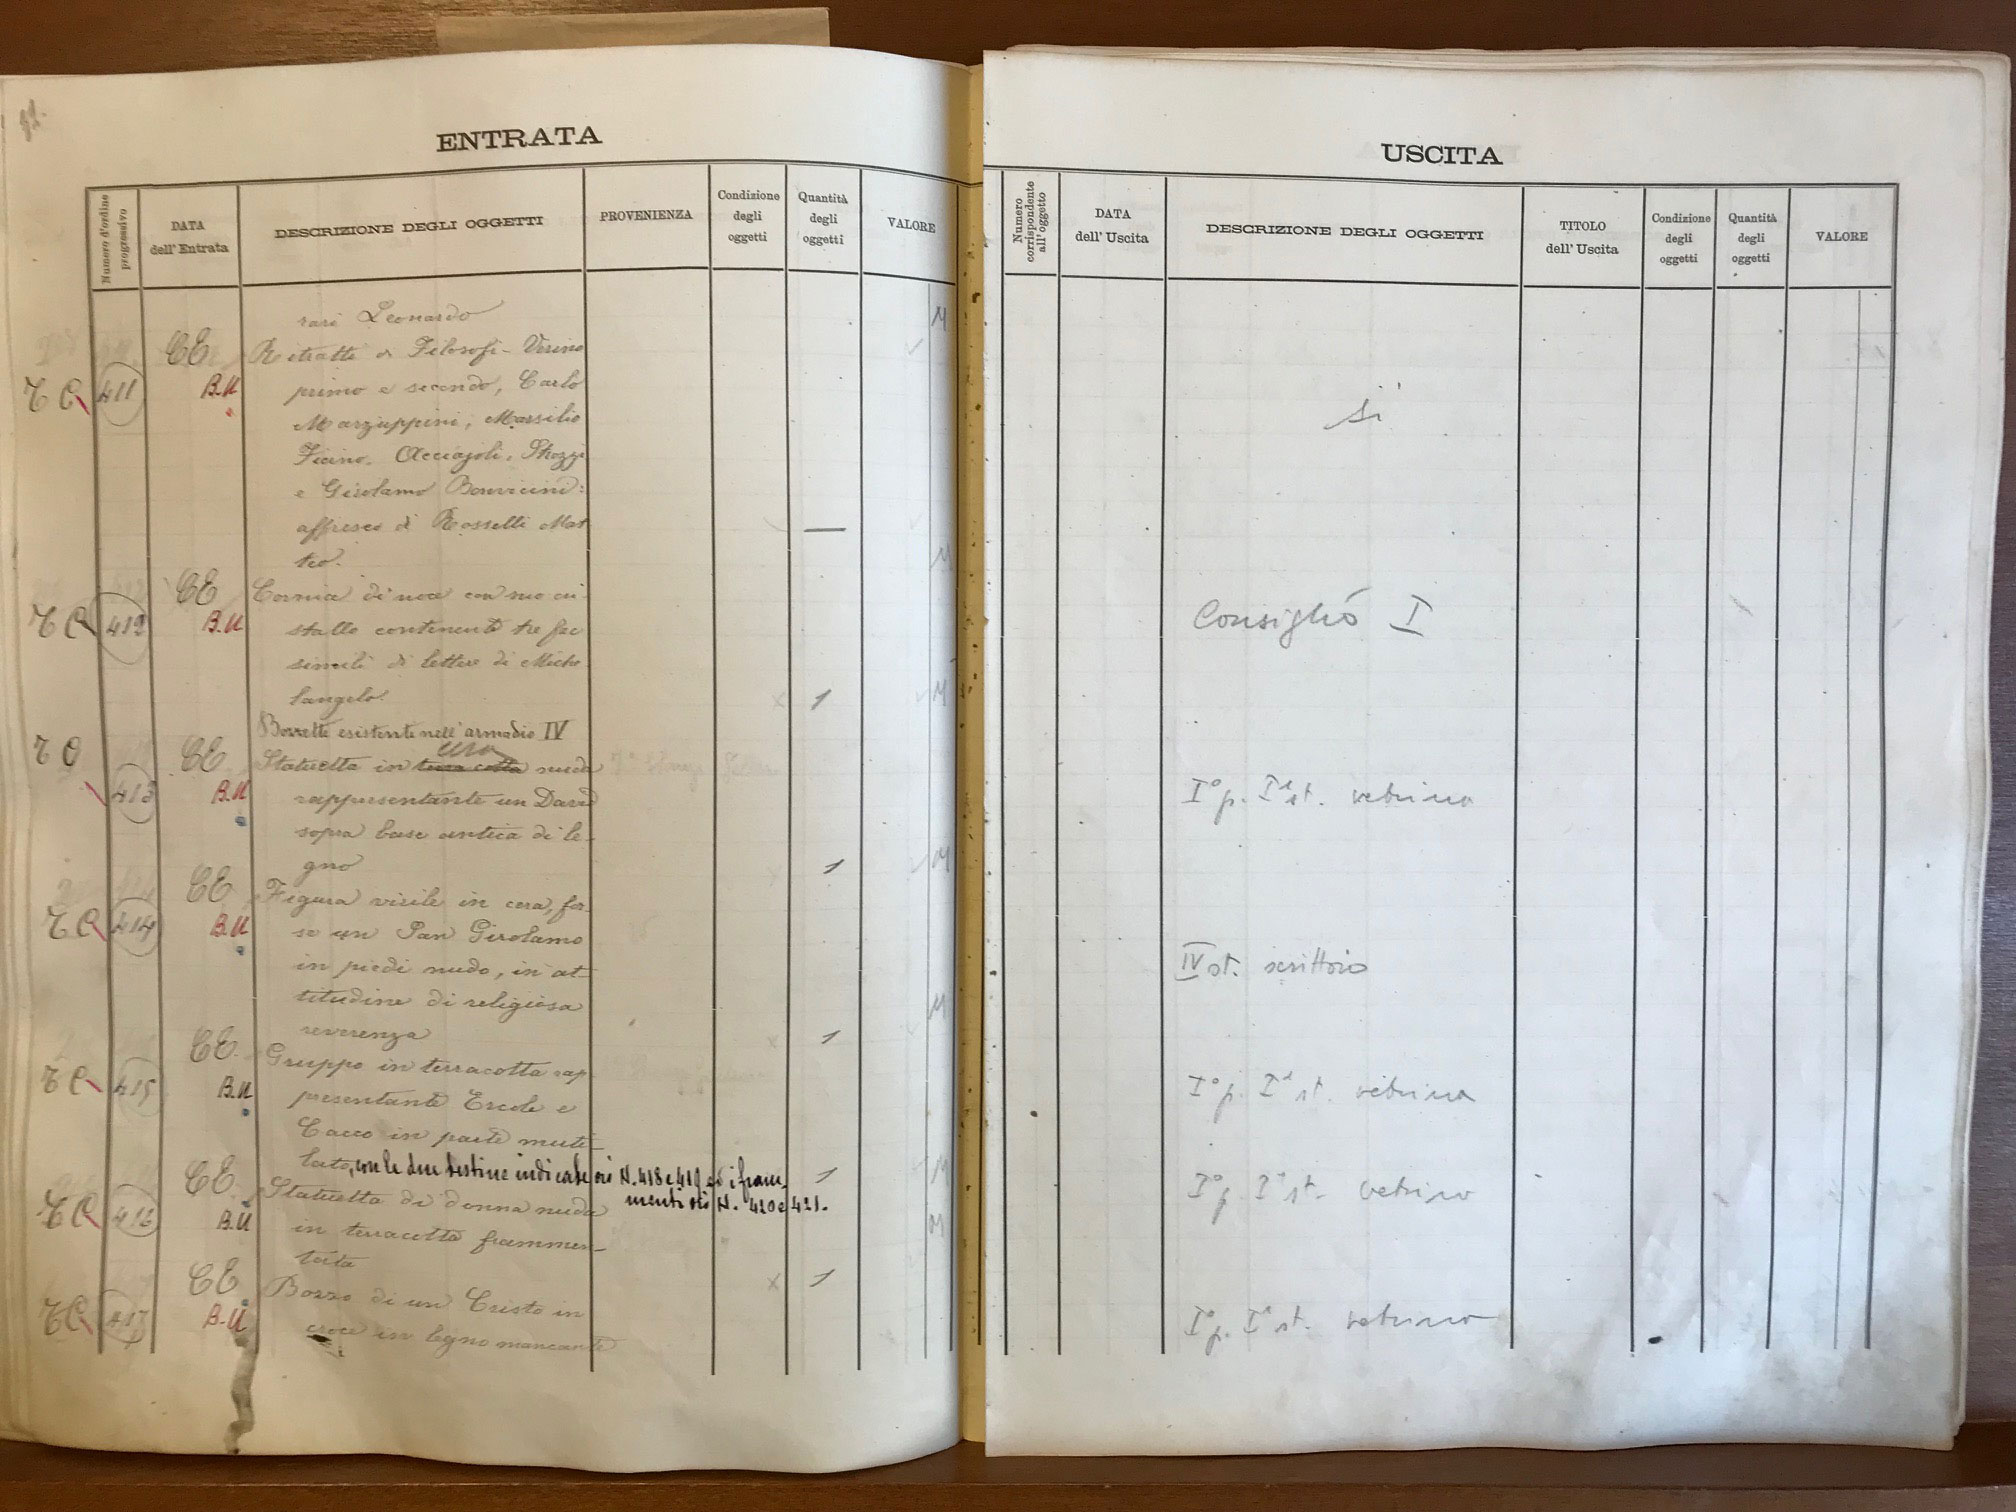 92.
ENTRATA
Numero d'ordine progressivo
DATA dell'Entrata
DESCRIZIONE DEGLI OGGETTI
PROVENIENZA
Condizione degli oggetti
Quantità degli oggetti
VALORE
rari Leonardo M
CE Ritratti di Filosofi - Verino
TC 411 B.U primo e secondo, Carlo
Marzuppini, Marsilio
Ficino, Acciajoli, Strozzi
e Girolamo Benivieni:
affresco di Rosselli Mat
teo. M
CE Cornice di noce con suo cri-
TC 412 B.U stallo contenente tre fac
simili di lettere di Miche
langelo. 1 M
Bozzetti esistenti nell'armadio IV
cera
TC CE Statuetta in terra cotta nuda
413 B.U rappresentante un David
sopra base antica di le-
gno 1 M
CE Figura virile in cera, for-
TC 414 B.U se un San Girolamo
in piedi nudo, in at-
titudine di religiosa M
reverenza 1
CE Gruppo in terracotta rap
TC 415 B.U presentante Ercole e
Cacco in parte muti-
lato, con le due testine indicate ai N. 418 e 419 ed i fram- 1 M
menti ai N. 420 e 421.
CE Statuetta di donna nuda
TC 416 B.U in terracotta frammen- M
tata 1
CE Bozzo di un Cristo in
TC 417 B.U croce in legno mancante
USCITA
Numero corrispondente all'oggetto
DATA dell' Uscita
DESCRIZIONE DEGLI OGGETTI
TITOLO dell' Uscita
Condizione degli oggetti
Quantità degli oggetti
VALORE
si
Consiglio I
I° p. Iª st. vetrina
IV st. scrittoio
I° p. Iª st. vetrina
I° p. Iª st. vetrina
I° p. Iª st. vetrina